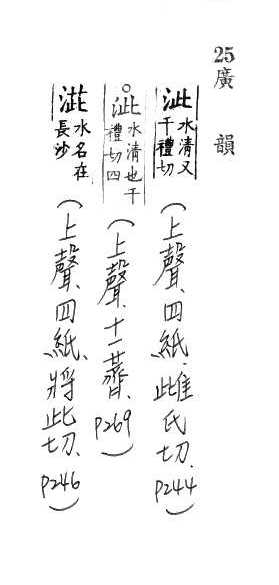 25 廣韻
泚 水清又
千禮切 (上聲、四紙、雌氏切、P244)
○泚 水清也千
禮切四 (上聲、十一薺、P269)
水名在
長沙 (上聲、四紙、將此切、P246)